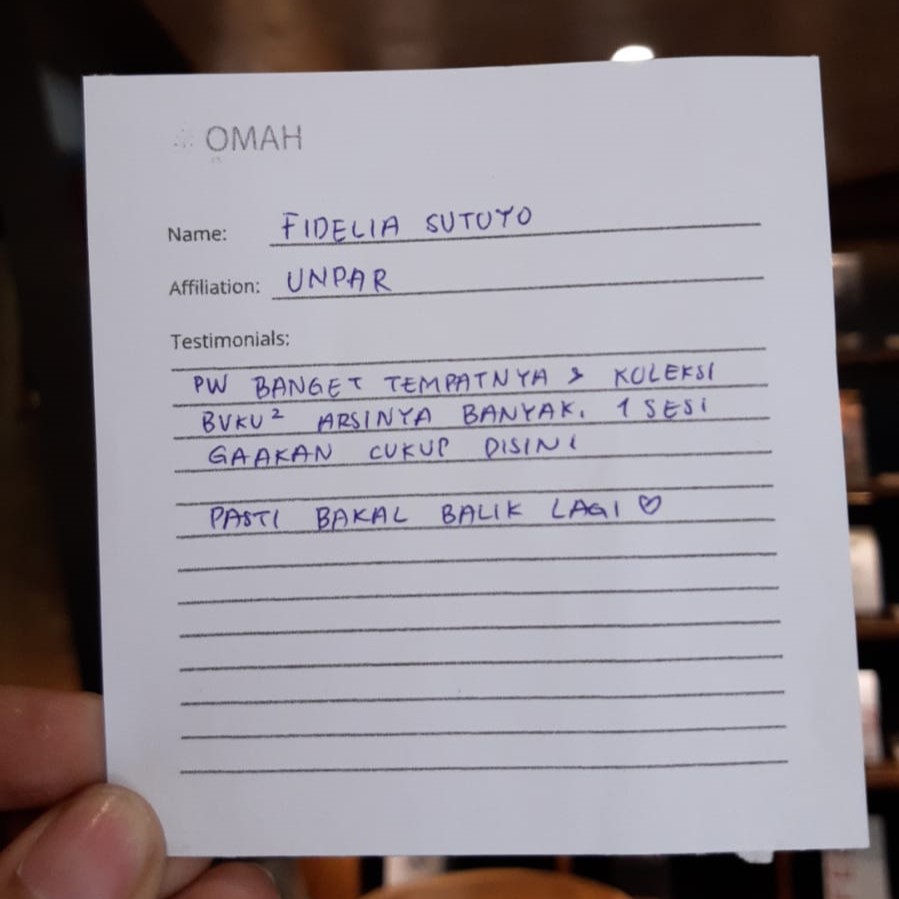 OMAH
Name: FIDELIA SUTUYO
Affiliation: UNPAR
Testimonials:
PW BANGET TEMPATNYA & KOLEKSI
BUKU² ARSINYA BANYAK. 1 SESI
GAAKAN CUKUP DISINI
PASTI BAKAL BALIK LAGI ♡